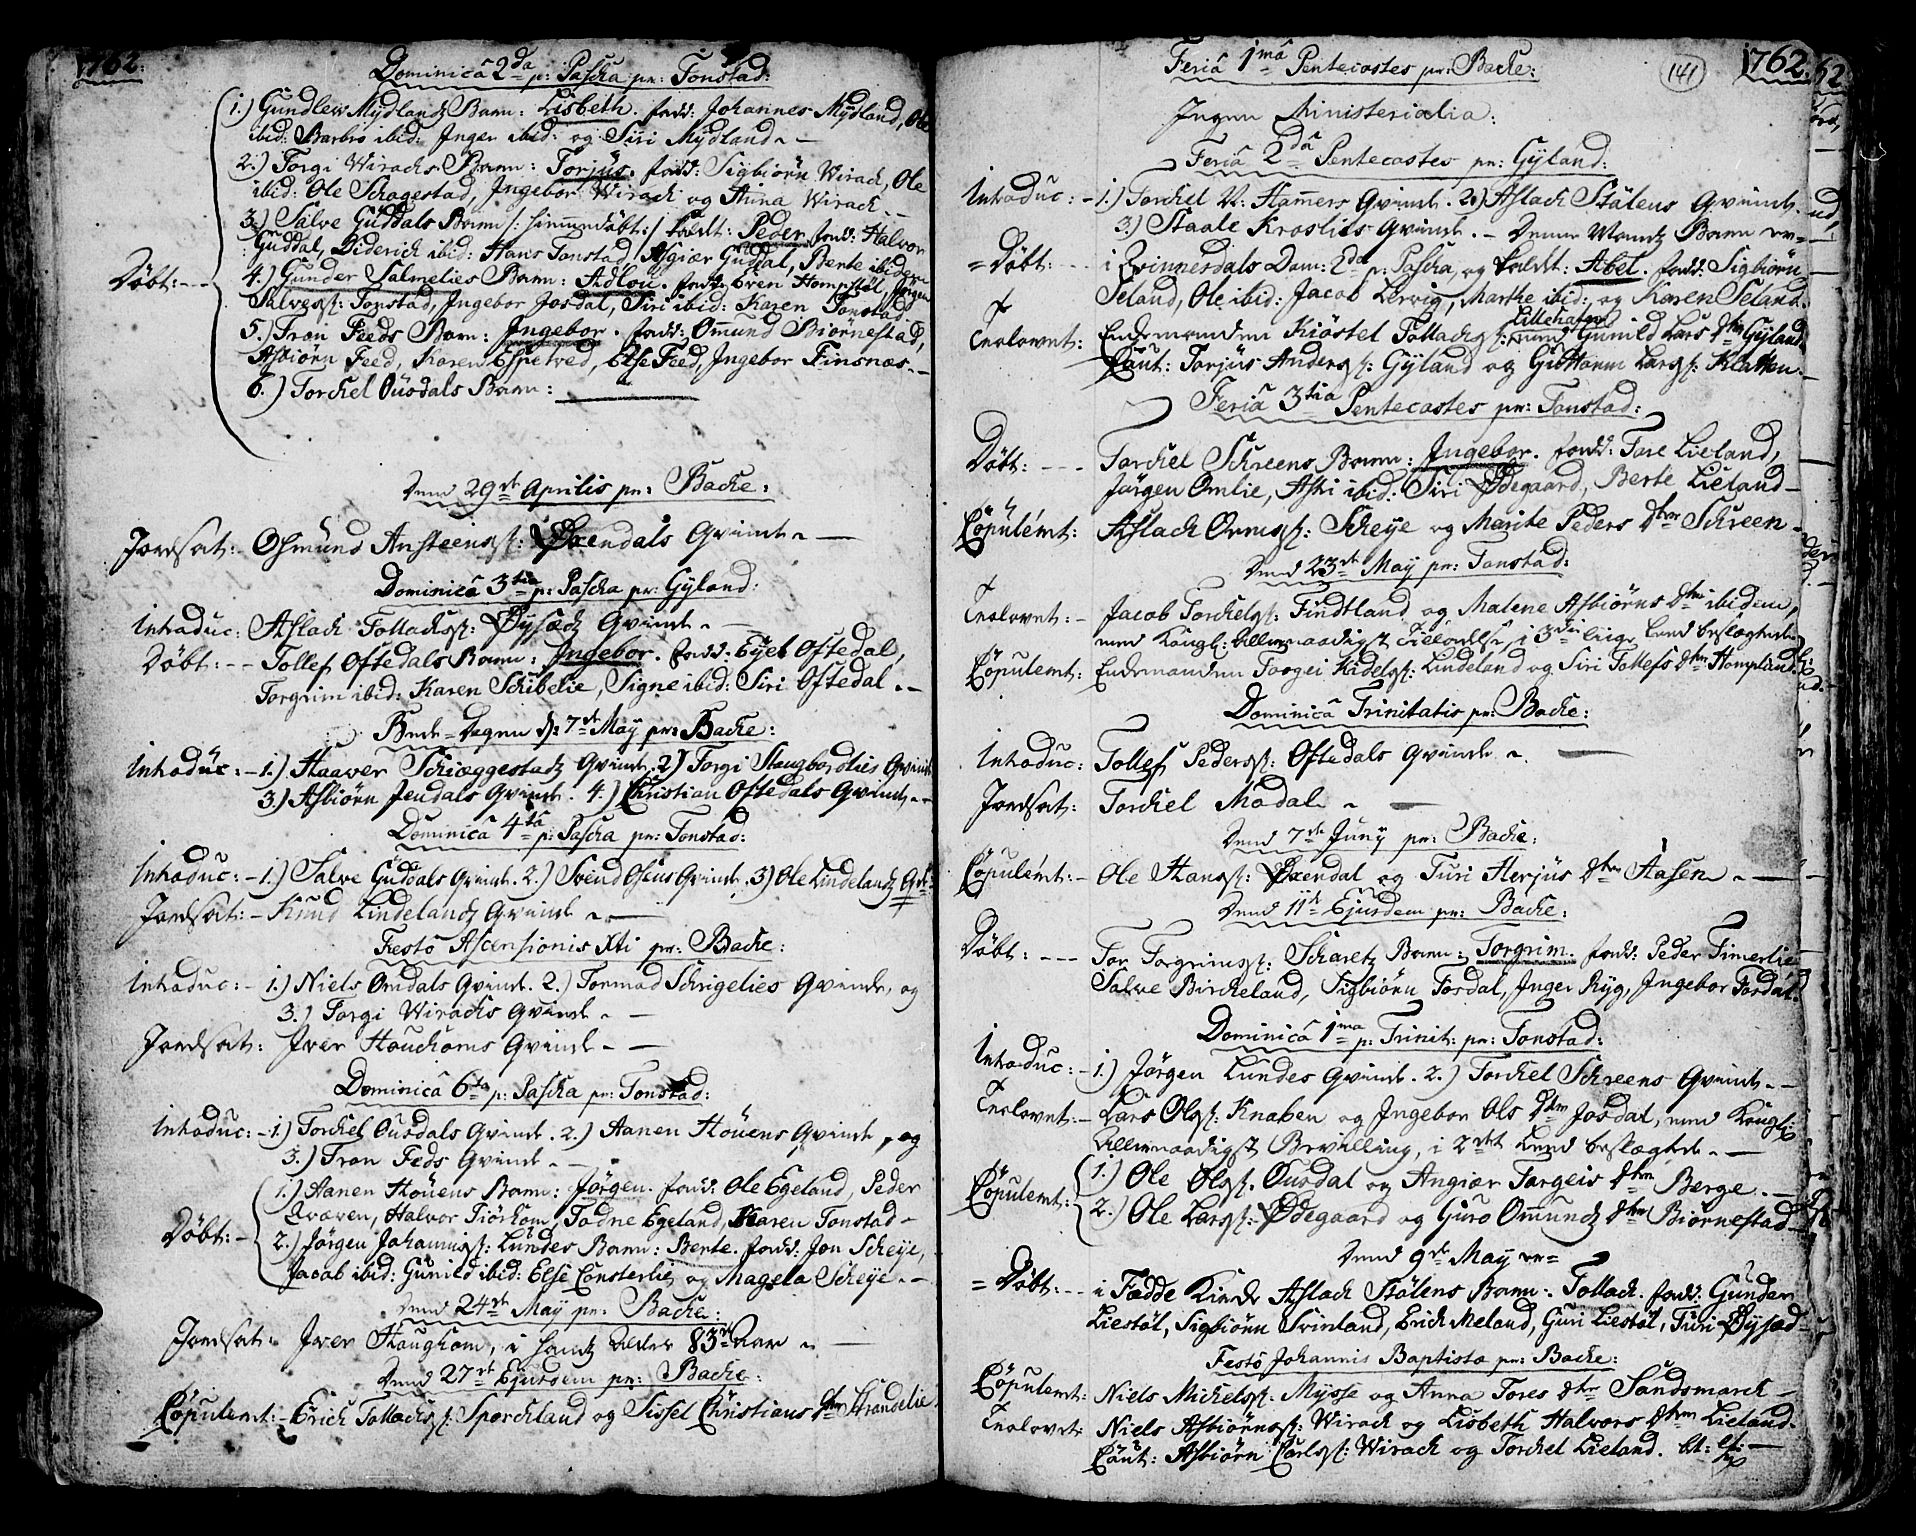 1762.
Dominicâ 2da p: Pascha pr: Tonstad:
1.) Gundlew Mydlands Barn: Lisbeth. fadd: Johannes Mydland, Ole
ibid: Barbro ibid: Inger ibid: og Siri Mydland.
2.) Torgi Wiracks Barn: Torjüs. fadd: Sigbiörn Wirack, Ole
ibid: Ole Schagestad, Ingebor Wirack og Anna Wirack.
3.) Salve Guddals Barn /: hiemmedöbt :/ kaldt: Peder. fadd: Halvor
Guddal, Diderich ibid: Hans Tonstad, Asgiær Guddal, Bente ibidem
Döbt: 4.) Gunder Salmelies Barn: Adlou. fadd: Even Homstøl, Jörgen
Salves: Tonstad, Ingebor Josdal, Siri ibid: Karen Tonstad.
5.) Tron Feeds Barn: Ingebor. fadd: Omund Biörnestad,
Asbiörn Feed, Karen Espetved, Else Feed, Ingebor Finsnæs.
6.) Torchel Ousdals Barn:
Dend 29de Aprilis pr: Backe:
Jordsat: Osmund Ansteens: Øxendals Qvinde.
Dominicâ 3tia p: Pascha pr: Gyland:
Introduc: Aslach Tollachs: Øysæds Qvinde.
Döbt: Tollef Oftedals Barn: Ingebor. fadd: Eyel Oftedal,
Torgrim ibid: Karen Schibelie, Signe ibid: Siri Oftedal.
Bede-Dagen d: 7de May pr: Backe:
Introduc: 1.) Haaver Schieggestads Qvinde. 2.) Torgi Haugbordlies Qvinde
3.) Asbiörn Jendals Qvinde. 4.) Christian Oftedals Qvinde.
Dominicâ 4ta p: Pascha pr: Tonstad:
Introduc: 1.) Salve Guddals Qvinde. 2.) Svend Osens Qvinde, 3.) Ole Lindelands Qvde
Jordsat: Knud Lindelands Qvinde.
Festo Ascensionis Xti pr: Backe:
Introduc: 1.) Niels Omdals Qvinde. 2.) Tormod Schrigelies Qvinde, og
3.) Torgi Wiracks Qvinde.
Jordsat: Iver Houchoms Qvinde.
Dominicâ 6ta p: Pascha pr: Tonstad:
Introduc: 1.) Torchel Ousdals Qvinde. 2.) Aanen Høuens Qvinde, og
3.) Tron Feds Qvinde.
1.) Aanen Höuens Barn: Jörgen. fadd: Ole Egeland, Peder
Qvæven, Halvor Fiörhom, Tadne Egeland, Karen Tonstad
Döbt: 2.) Jörgen Johannis: Lundes Barn: Bente. fadd: Jon Scheye,
Jacob ibid: Gunild ibid: Else Consterlie og Magela Scheye.
Dend 24de May pr: Backe:
Jordsat: Iver Haughom, i hands Alder 83de Aar.
Dend 27de Ejusdem pr: Backe:
Copulerst: Erich Tollachs: Sporchland og Sissel Christians dtr Strandelie
Feriâ 1mâ Pentecostes pr: Backe:
141
1762.
Ingen Ministerialia:
Feriâ 2dâ Pentecostes pr: Gyland:
Introduc: 1.) Torchel N: Hamers Qvinde. 2.) Aslach Stölens Qvinde.
3.) Staale Kroslies Qvinde. Denne Mands Barn er
Döbt: i Qvinnesdals Dom: 2da p: Pascha, og kaldt: Abel. fadd: Sigbiörn
Seland, Ole ibid: Jacob Lervig, Marthe ibid:, og Karen Seland.
Trolovet: Enkemanden Kiöstel Tollachs: Lillehafen med Gunild Lars dtr Gyland.
Caut: Torjüs Anders: Gyland og Guttorm Lars: Klatten.
Feriâ 3tia Pentecostes pr: Tonstad:
Döbt: Torchel Schreens Barn: Ingebor. fadd: Tore Lieland,
Jörgen Omlie, Astri ibid: Siri Ødegaard, Berte Lieland
Copulerst: Aslach Orms: Scheye og Marite Peders dtr Schreen
Dend 23de May pr: Tonstad:
Trolovet: Jacob Torchels: Findtland og Malene Asbiörns dtr ibidem,
med Kongl: Allernaadigst Tilladelse, i 3die liige Leed beslægtede
Copulerst: Enkemanden Torgei Kidels: Lindeland og Siri Tollefs dtr Hompland.
Dominicâ Trinitatis pr: Backe:
Introduc: Tollef Peders: Oftedals Qvinde.
Jordsat: Torchel Modal.
Dend 7de Juny pr: Backe:
Copulerst: Ole Hans: Øxendal og Turi Herjus dtr Aasen.
Dend 11te Ejusdem pr: Backe:
Döbt: Tor Torgrims: Scharets Barn: Torgrim. fadd: Peder Timerlie
Salve Bircheland, Sigbiörn Fosdal, Inger Ryg, Ingebor Fosdal.
Dominicâ 1ma p: Trinit: pr: Tonstad:
Introduc: 1.) Jörgen Lundes Qvinde. 2.) Torchel Schreens Qvinde.
Trolovet: Lars Ols: Knaben og Ingebor Ols dtr Josdal, med Kongl:
Allernaadigst Bevilling, i 2det Leed beslægtede.
Copulerst: 1.) Ole Ols: Ousdal og Angiær Torgeis dtr Berge.
2.) Ole Lars: Ødegaard og Guro Omunds dtr Biörnestad
Dend 9de May er
Döbt: i Fædde Kirke Aslach Stölens Barn: Tollach. fadd: Gunder
Liestøl, Sigbiörn Svinland, Erich Meland, Guri Liestøl, Turi Øysæd
Festo Johannis Baptista pr: Backe:
Copulerst: Niels Michels: Mysse og Anna Tores dtr Sandsmarck
Trolovet: Niels Asbiörns: Wirack og Lisbeth Halvors dtr Lieland.
Caut: Asbiörn Carls: Wirack og Torchel Lieland.